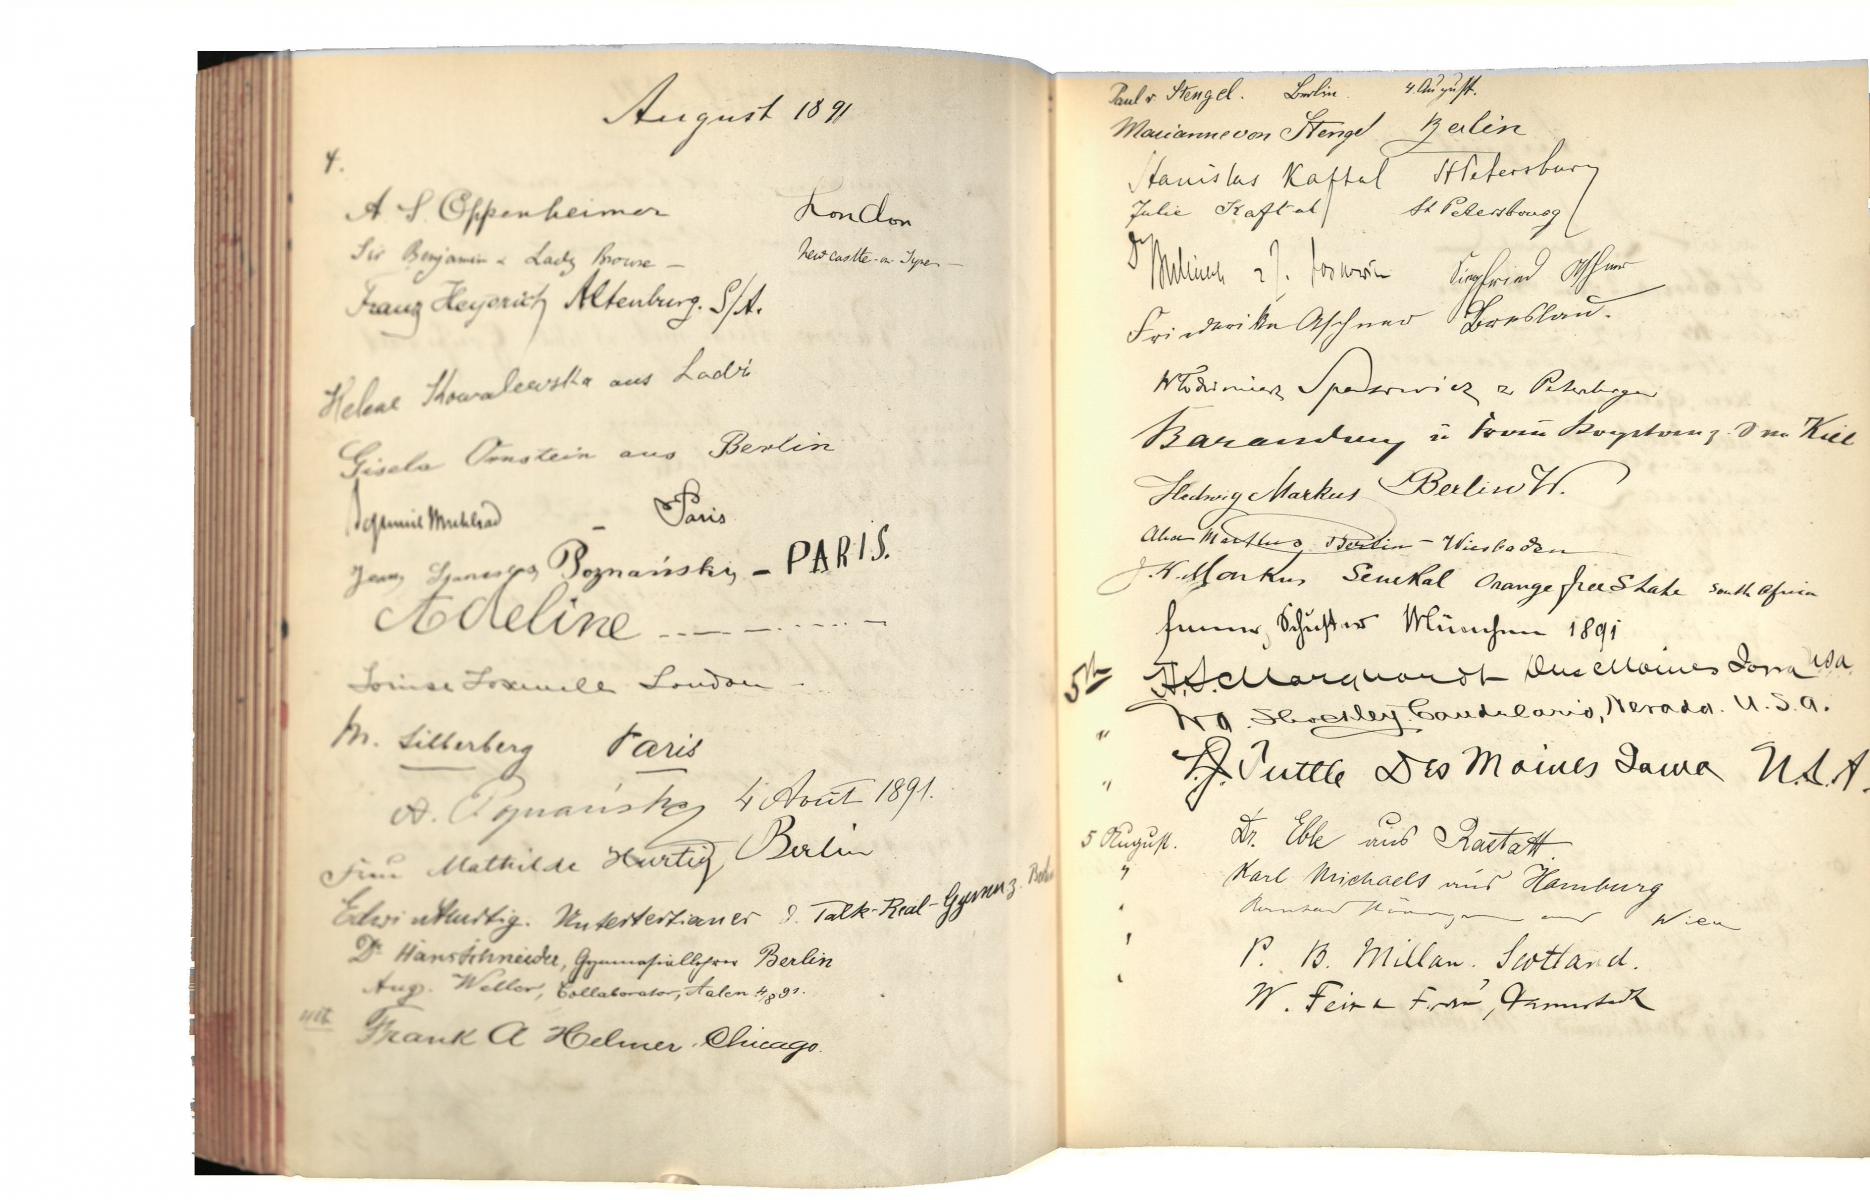 August 1891
4.
A S Oppenheimer London
Sir Benjamin & Lady Browne — Newcastle-on-Tyne —
Franz Heyerich Altenburg. S/A.
Helene Kowalewska aus Lodz
Gisela Ornstein aus Berlin
– Paris
Poznański, – PARIS.
Adeline
Louise London –
M. Silberberg Paris
A. Poznański 4 Août 1891.
Frau Mathilde Hurtig, Berlin
Edwin Hurtig. Untertertianer d. Falk-Real-Gymnas. Berlin
Dr Hans Schneider, Gymnasiallehrer Berlin
Aug. Weller, Collaborator, Aalen 4/8 91.
4th Frank A Helmer. Chicago.
Paul v. Stengel. Berlin. 4. August.
Marianne von Stengel Berlin
Stanislas Kaftal St Petersburg
Julie Kaftal St Petersbourg
Dr Siegfried Aschner
Friederike Aschner Breslau.
Włodzimierz Spasowicz z Petersburga
Kiel
Hedwig Markus Berlin W.
Berlin – Wiesbaden
J. K. Markus Senekal Orange free State South Africa
Schuster München 1891
5th A. S. Marquardt Des Moines Iowa USA.
" Candelaria, Nevada. U.S.A.
" Tuttle Des Moines Iowa U.S.A.
5 August. Dr. Eble aus Rastatt
" Karl Michaels aus Hamburg
" aus Wien
" P. B. Millan. Scotland.
" W. Darmstadt